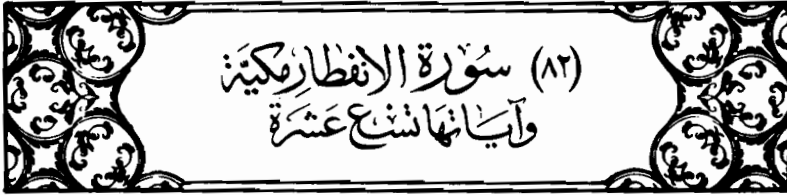 (٨٢) سُورَة الانفطار مكيَّة
وآيَاتهَا تسْع عَشرَة